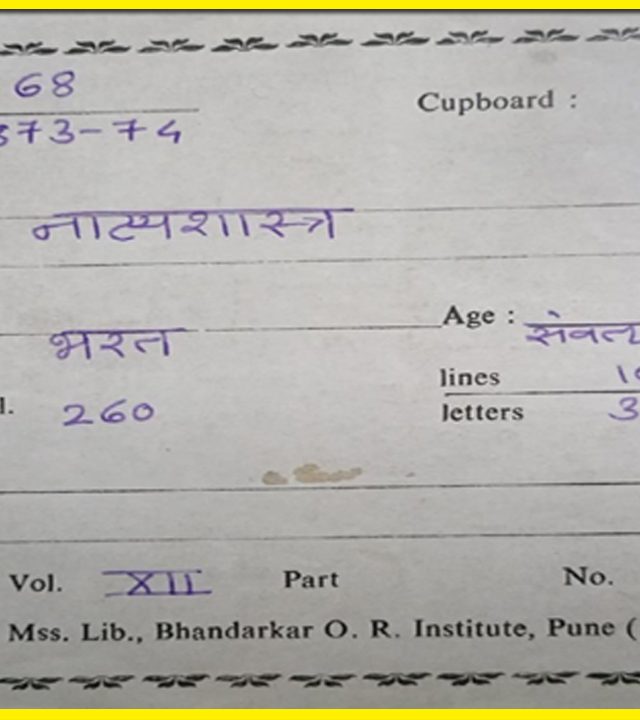 68
373-74
Cupboard :
नाट्यशास्त्र
भरत
Age :
lines
260
letters
Vol. XII Part No.
Mss. Lib., Bhandarkar O. R. Institute, Pune (